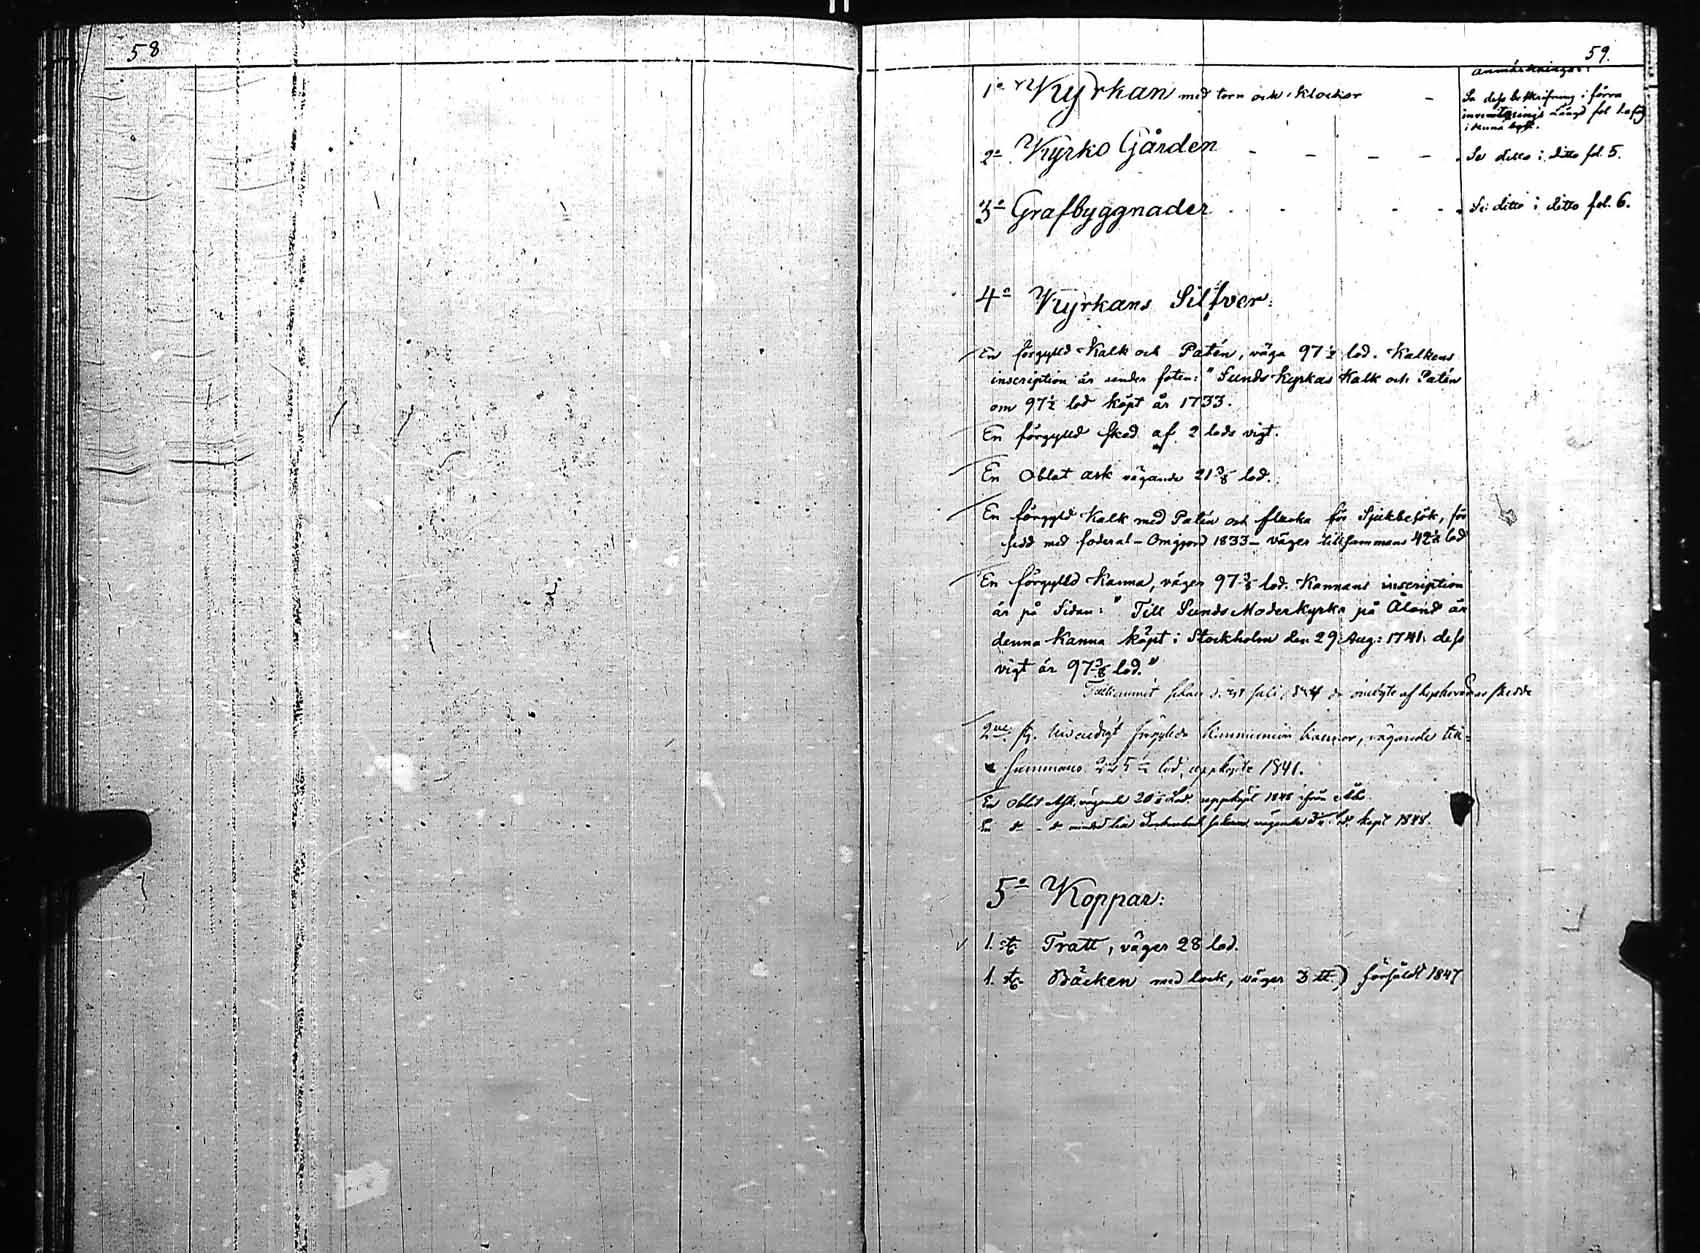 58
59.
Anmärkningar:
1o Kyrkan med torn och Klockor -
Se dess beskrifning i förra
inventerings Längd fol 1
i denna bok.
2o Kyrko Gården - - - - -
Se ditto i ditto fol. 5.
3o Grafbyggnader . . . . - -
Se ditto i ditto fol. 6.
4o Kyrkans Silfver:
En förgylld Kalk och Patén, väga 97½ lod. Kalkens
inscription är under foten: "Sunds Kyrkas Kalk och Patén
om 97½ lod köpt år 1733.
En förgylld sked af 2 lods vigt.
En Oblat ask vägande 21 3/8 lod.
En förgyld Kalk med Patén och flaska för Sjukbesök, för
sedd med foderal - Omgjord 1833 - väger tillsammans lod
En förgylld Kanna, väger 97 3/8 lod. Kannans inscription
är på Sidan: "Till Sunds Moderkyrka på Åland är
denna Kanna köpt i Stockholm den 29 Aug: 1741. dess
vigt är 97 3/8 lod."
2ne st. invändigt förgyllda Kommunion kannor, vägande till-
sammans 225½ lod, uppköpte 1841.
En Oblat Ask vägande 20 Lod uppköpt 1848 från
En do - do vägande köpt 1848.
5o Koppar:
1. st. Tratt, väger 28 lod.
1. st. Bäcken med lock, väger 3 ℔.) försåldt 1847